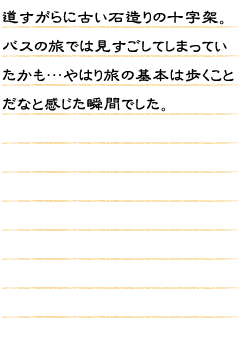 道すがらに古い石造りの十字架。
バスの旅では見すごしてしまってい
たかも…やはり旅の基本は歩くこと
だなと感じた瞬間でした。